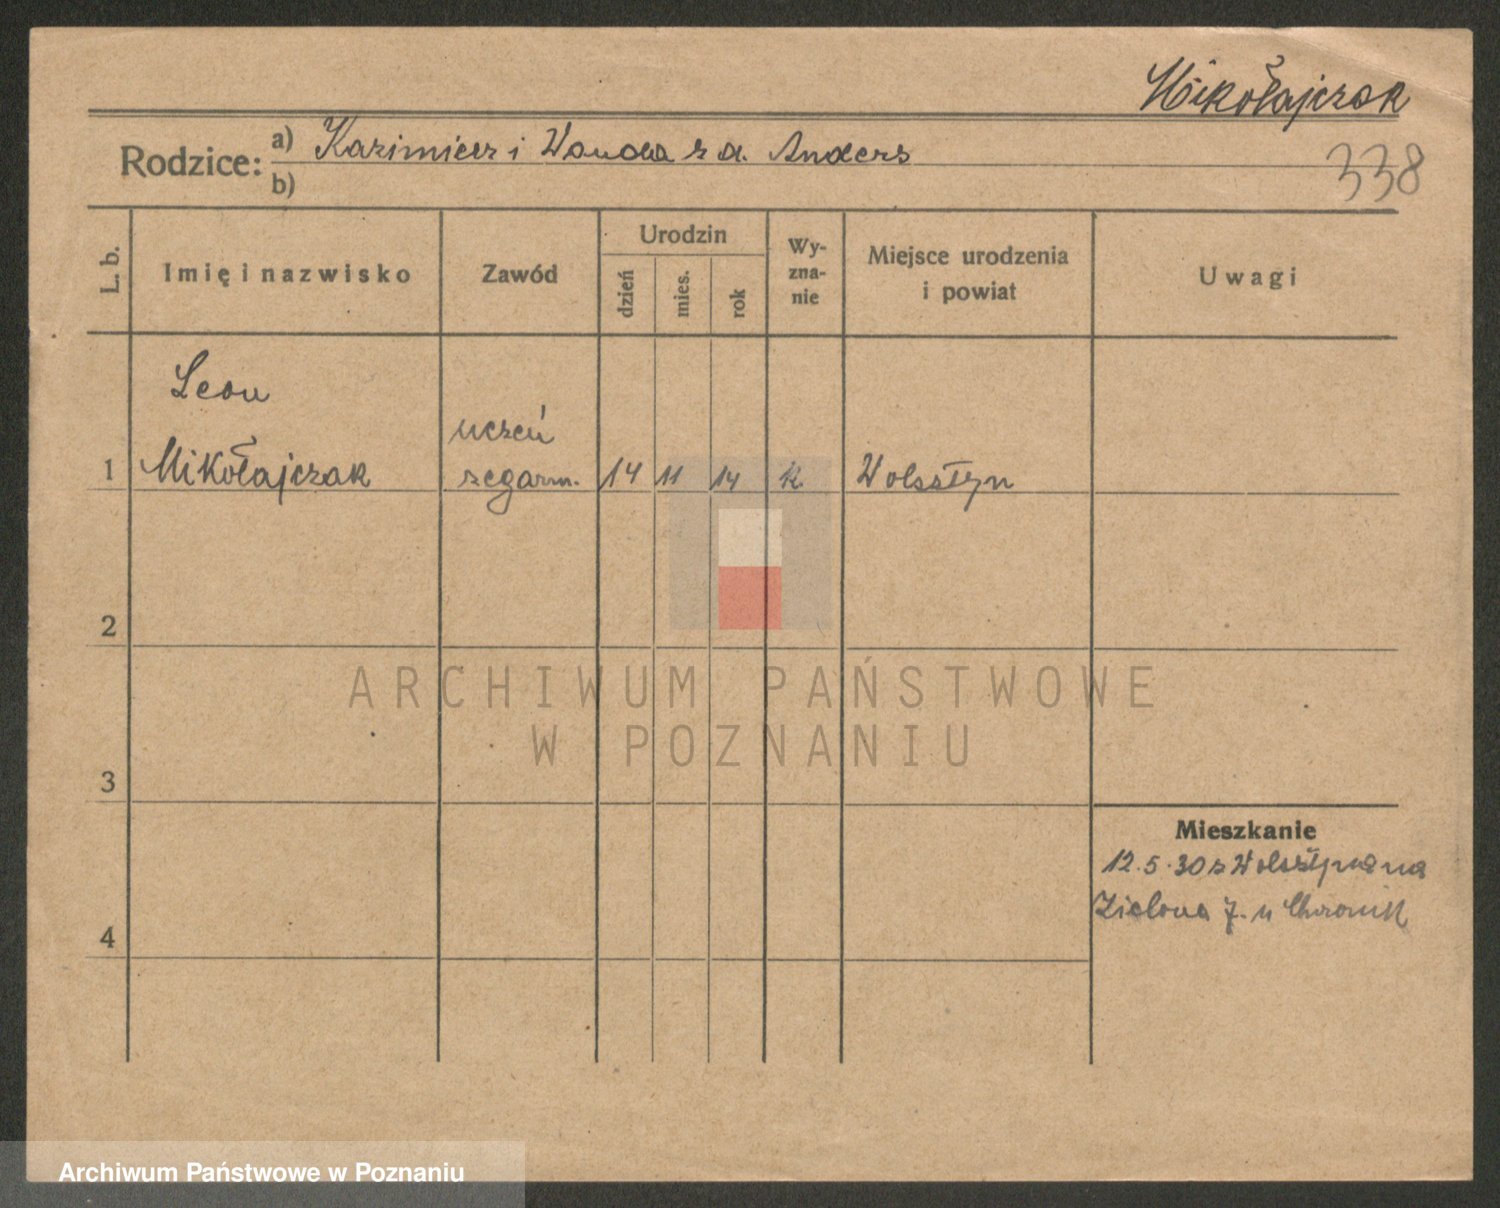 Mikołajczak
Rodzice: a) Kazimierz i Wanda z d. Anders
b)
338
L. b.
Imię i nazwisko
Zawód
Urodzin
dzień
mies.
rok
Wy-
zna-
nie
Miejsce urodzenia
i powiat
Uwagi
Leon
uczeń
1 Mikołajczak zegarm. 14 11 14 k Wolsztyn
2
3
4
ARCHIWUM PAŃSTWOWE
W POZNANIU
Mieszkanie
12.5.30 z Wolsztyna na
Zielona 7. u Chronik
Archiwum Państwowe w Poznaniu